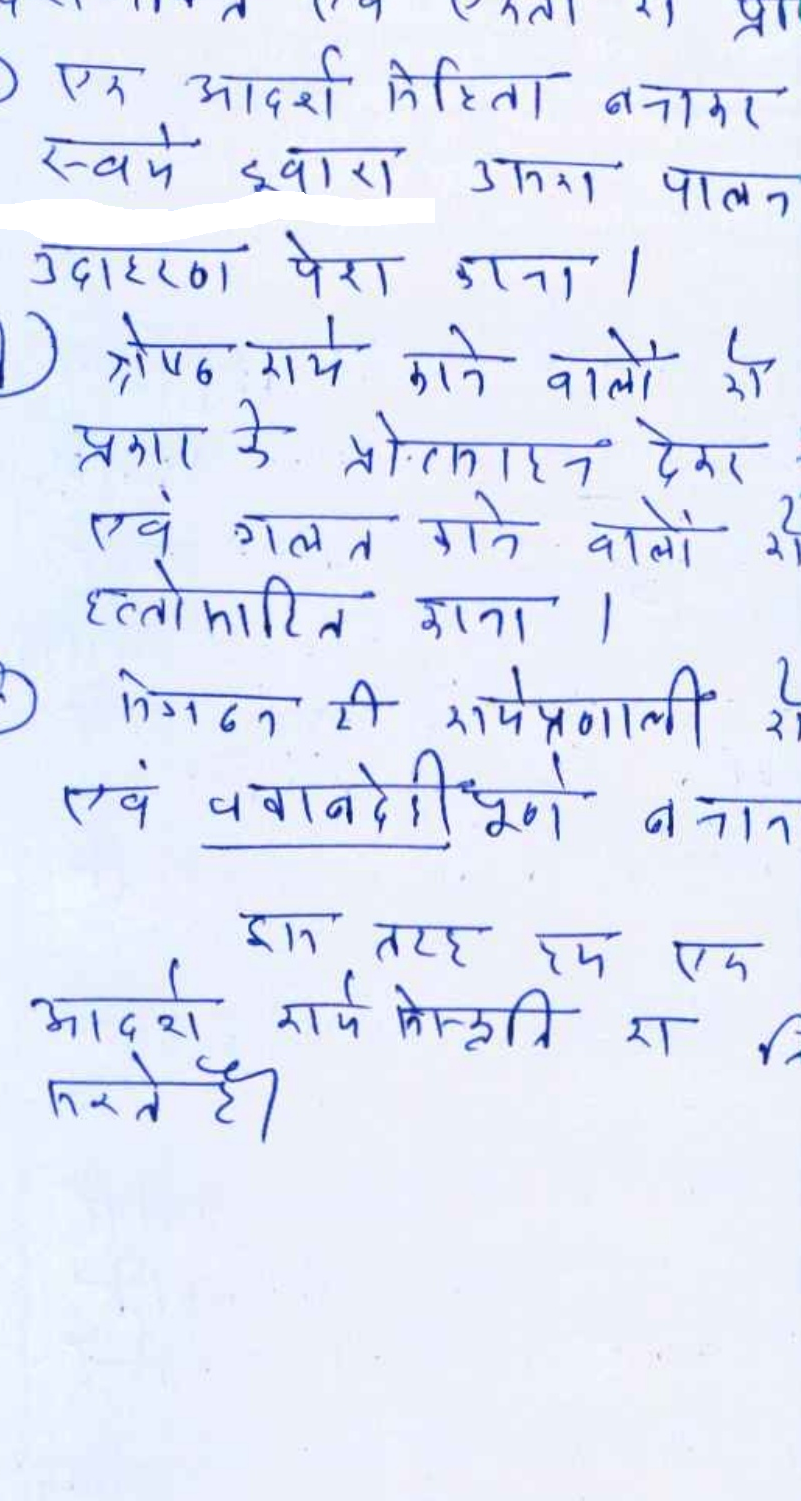 एक आदर्श संहिता बनाकर
स्वयं द्वारा उसका पालन
उदाहरण पेश करना।
श्रेष्ठ कार्य करने वालों को
प्रकार के प्रोत्साहन देकर
एवं गलत करने वालों को
हत्तोसाहित करना।
संगठन की कार्यप्रणाली को
एवं जवाबदेही पूर्ण बनाना
इस तरह हम एक
आदर्श कार्य संस्कृति का
करते हैं।